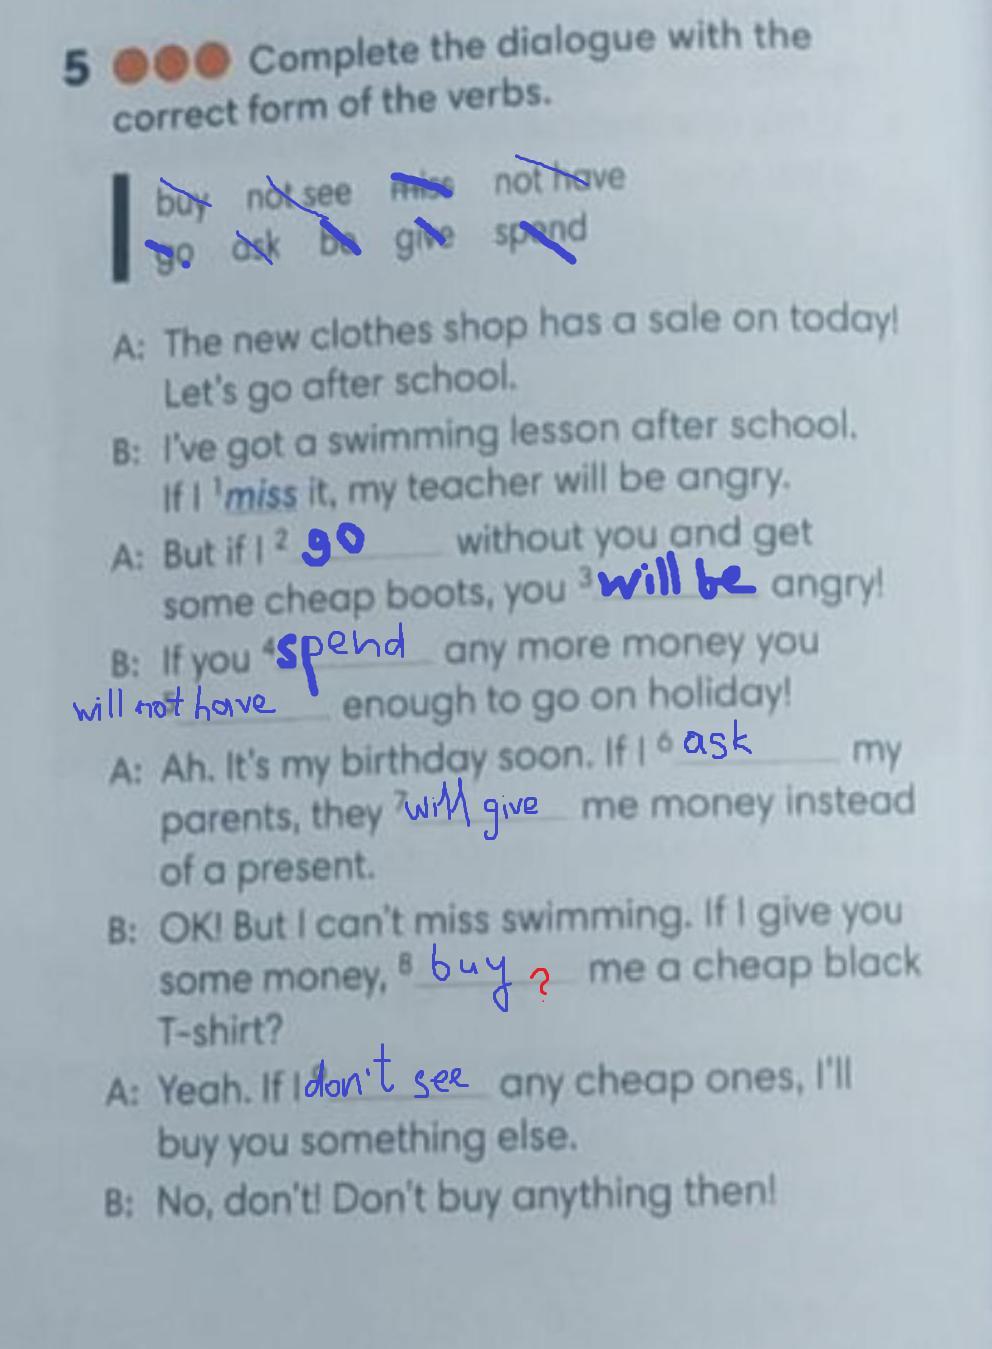 5 Complete the dialogue with the
correct form of the verbs.
buy not see miss not have
go ask be give spend
A: The new clothes shop has a sale on today!
Let's go after school.
B: I've got a swimming lesson after school.
If I 1 miss it, my teacher will be angry.
A: But if I 2 go without you and get
some cheap boots, you 3 will be angry!
B: If you 4 spend any more money you
5 will not have enough to go on holiday!
A: Ah. It's my birthday soon. If I 6 ask my
parents, they 7 will give me money instead
of a present.
B: OK! But I can't miss swimming. If I give you
some money, 8 buy ? me a cheap black
T-shirt?
A: Yeah. If I don't see any cheap ones, I'll
buy you something else.
B: No, don't! Don't buy anything then!